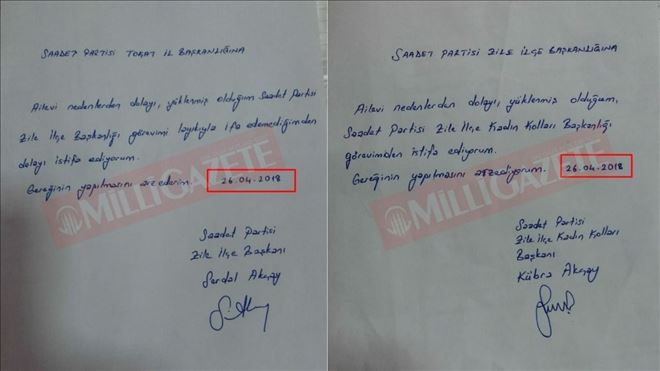 SAADET PARTİSİ TOKAT İL BAŞKANLIĞINA
Ailevi nedenlerden dolayı, yüklenmiş olduğum Saadet Partisi
Zile İlçe Başkanlığı görevimi layıkıyla ifa edemediğimden
dolayı istifa ediyorum.
Gereğinin yapılmasını arz ederim. 26.04.2018
MİLLİ GAZETE
Saadet Partisi
Zile İlçe Başkanı
Serdal Akçay
SAADET PARTİSİ ZİLE İLÇE BAŞKANLIĞINA
Ailevi nedenlerden dolayı, yüklenmiş olduğum,
Saadet Partisi Zile İlçe Kadın Kolları Başkanlığı
görevimden istifa ediyorum.
Gereğinin yapılmasını arzediyorum. 26.04.2018
MİLLİ GAZETE
Saadet Partisi
Zile İlçe Kadın Kolları
Başkanı
Kübra Akçay